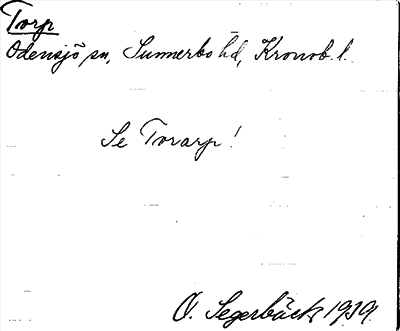 Torp
Odensjö sn, Sunnerbo hd, Kronob. l.
Se Torarp!
O. Segerbäck 1939.